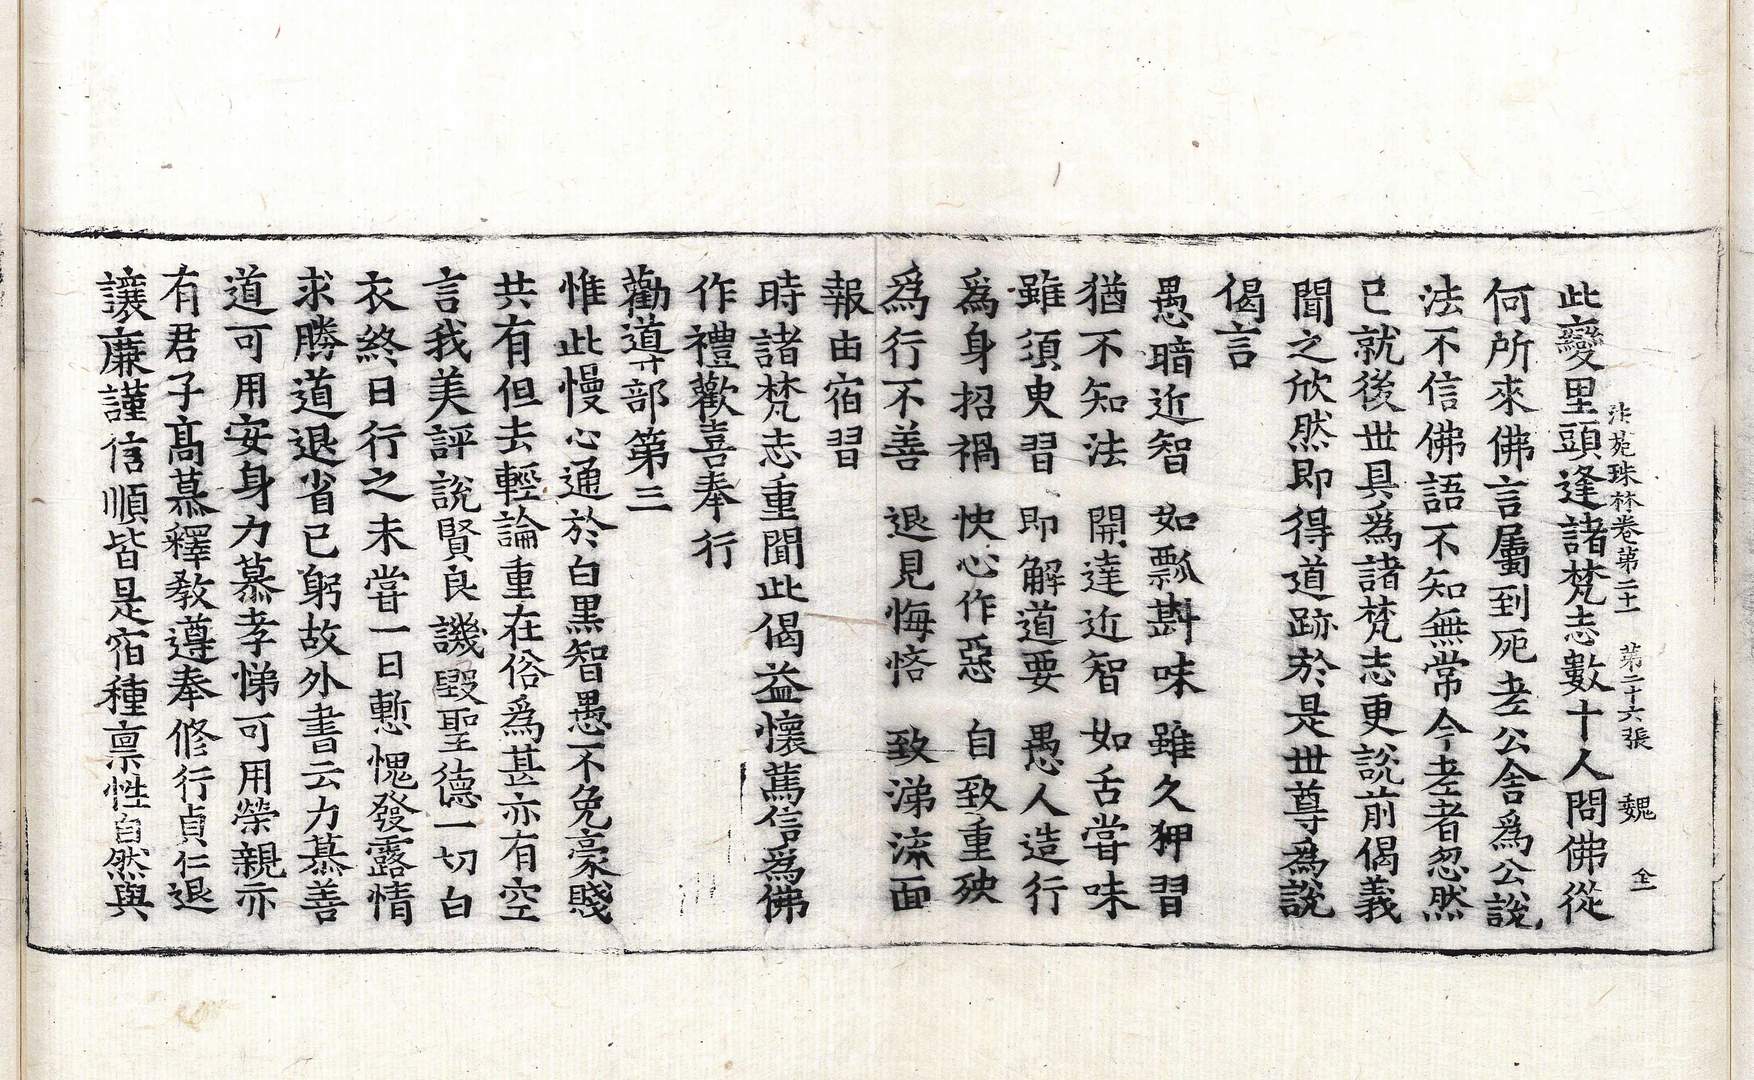 法苑珠林卷第二十一 第二十六張 魏 全
此變里頭逢諸梵志數十人問佛從
何所來佛言屬到死老公舍爲公說
法不信佛語不知無常今老者忽然
已就後世具爲諸梵志更說前偈義
聞之欣然即得道跡於是世尊爲說
偈言
愚暗近智 如瓢斟味 雖久狎習
猶不知法 開達近智 如舌甞味
雖須臾習 即解道要 愚人造行
爲身招禍 快心作惡 自致重殃
爲行不善 退見悔悋 致涕流面
報由宿習
時諸梵志重聞此偈益懷篤信爲佛
作禮歡喜奉行
勸導部第三
惟此慢心通於白黑智愚不免豪賤
共有但去輕論重在俗爲甚亦有空
言我美評說賢良譏毀聖德一切白
衣終日行之未甞一日慙愧發露情
求勝道退省己躬故外書云力慕善
道可用安身力慕孝悌可用榮親亦
有君子高慕釋教遵奉修行貞仁退
讓廉謹信順皆是宿種禀性自然與